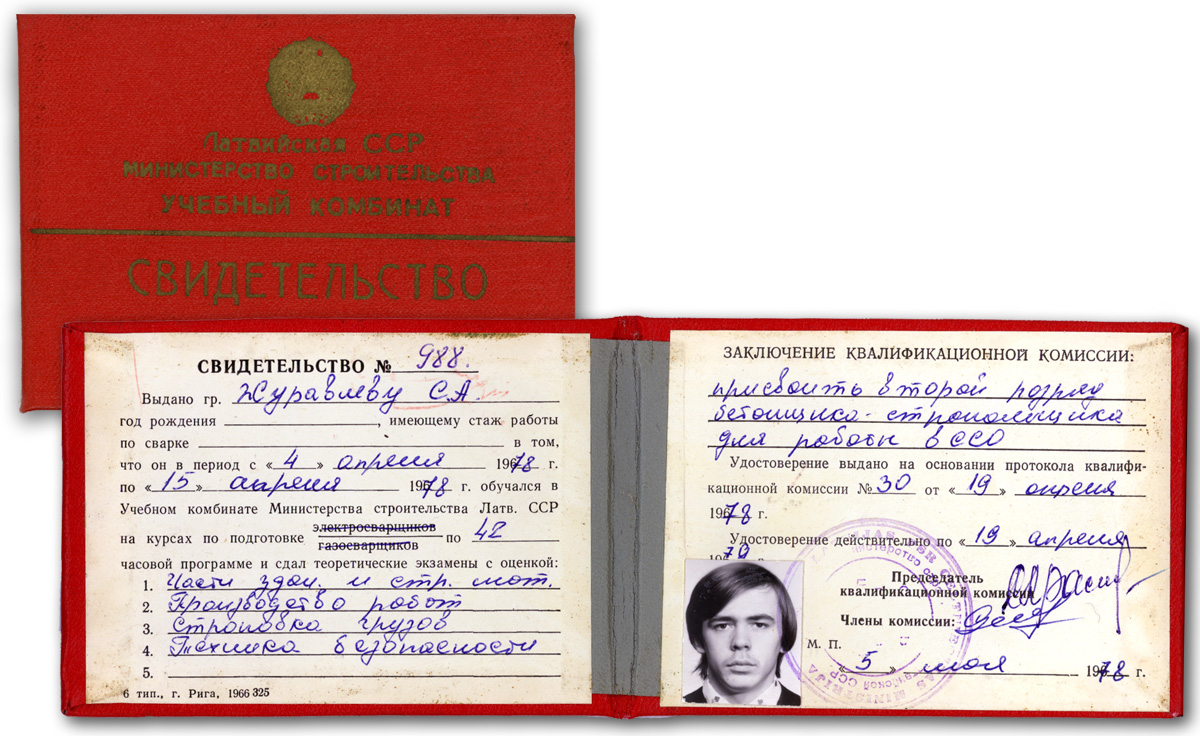 Латвийская ССР
МИНИСТЕРСТВО СТРОИТЕЛЬСТВА
УЧЕБНЫЙ КОМБИНАТ
СВИДЕТЕЛЬСТВО
СВИДЕТЕЛЬСТВО № 988.
Выдано гр. Журавлеву С.А.
год рождения , имеющему стаж работы
по сварке в том,
что он в период с « 4 » апреля 1978 г.
по « 15 » апреля 1978 г. обучался в
Учебном комбинате Министерства строительства Латв. ССР
на курсах по подготовке электросварщиков газосварщиков по 42
часовой программе и сдал теоретические экзамены с оценкой:
1. Части здан. и стр. мат.
2. Производство работ
3. Строповка грузов
4. Техника безопасности
5.
6 тип., г. Рига, 1966 325
ЗАКЛЮЧЕНИЕ КВАЛИФИКАЦИОННОЙ КОМИССИИ:
присвоить второй розряд
бетонщика-стропальщика
для работы в ССО
Удостоверение выдано на основании протокола квалифи-
кационной комиссии № 30 от « 19 » апреля
1978 г.
Удостоверение действительно по « 19 » апреля
1979 г.
Председатель
квалификационной комиссии
Члены комиссии:
М. П.
« 5 » мая 1978 г.